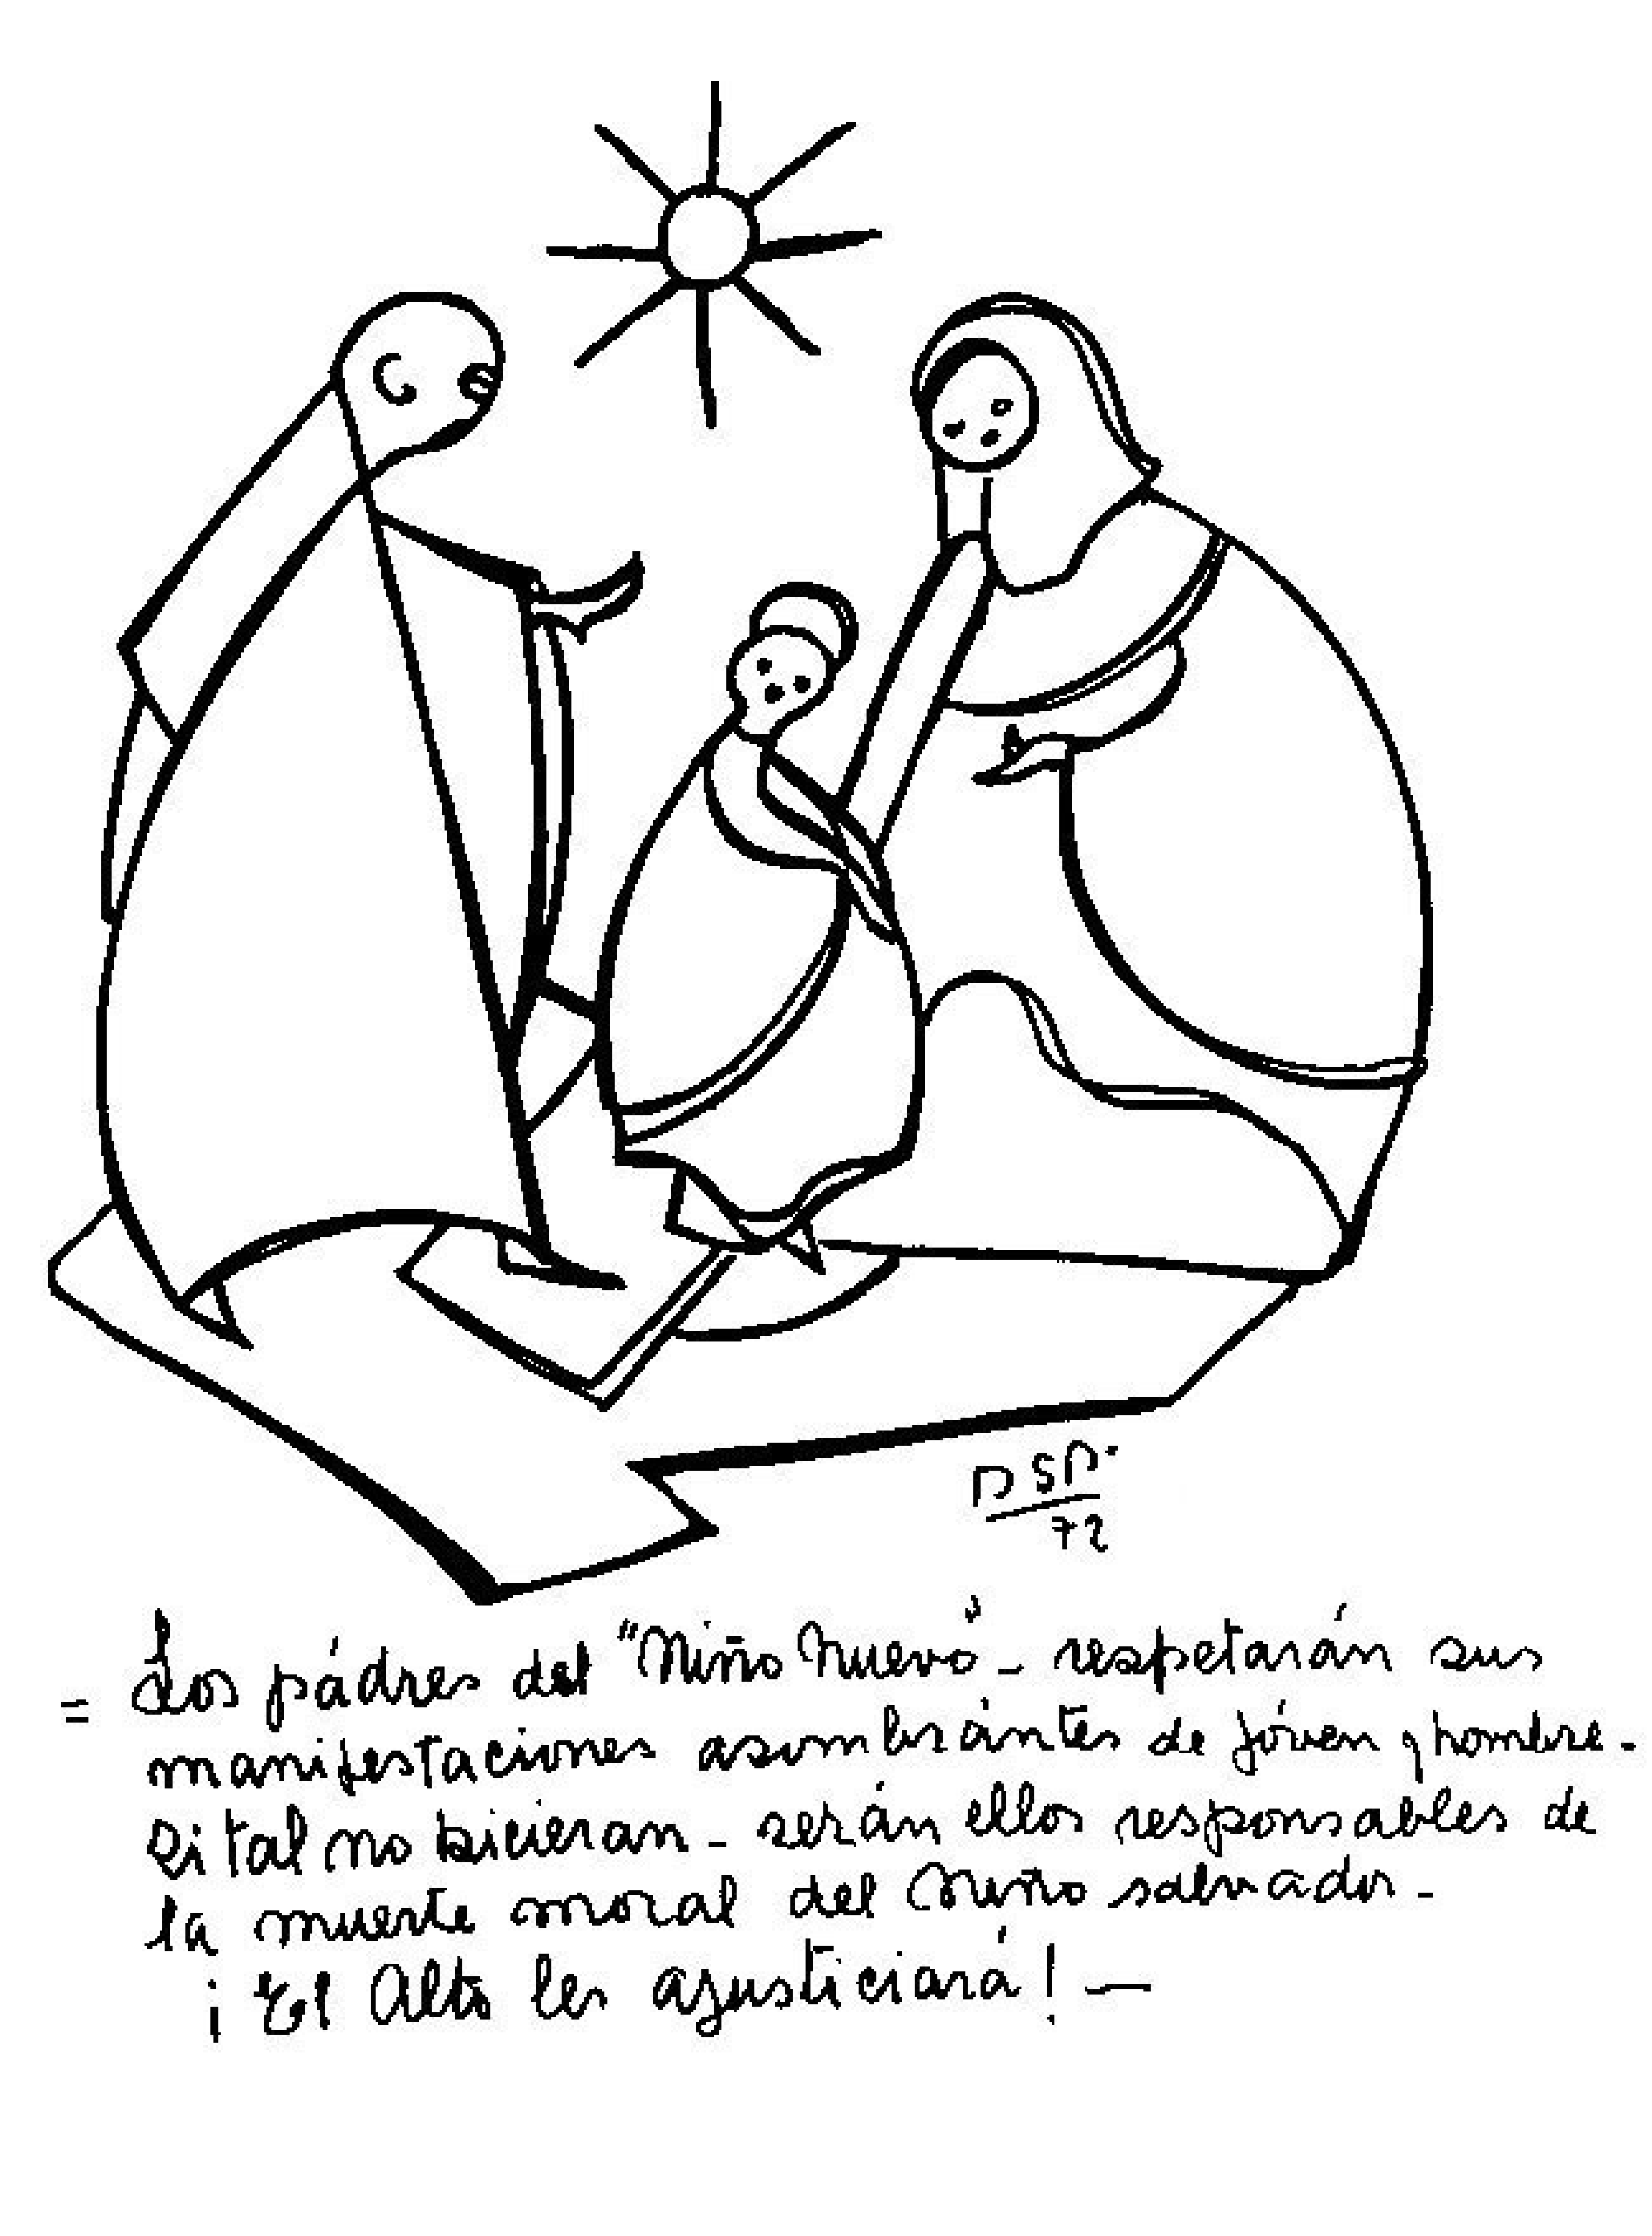 DSP.
72
= Los pádres del "Niño Nuevo" - respetarán sus
manifestaciones asombrántes de jóven y hombre.
Si tal no hicieran - serán ellos responsables de
la muerte moral del Niño salvador -
¡El Alto les ajusticiará! —